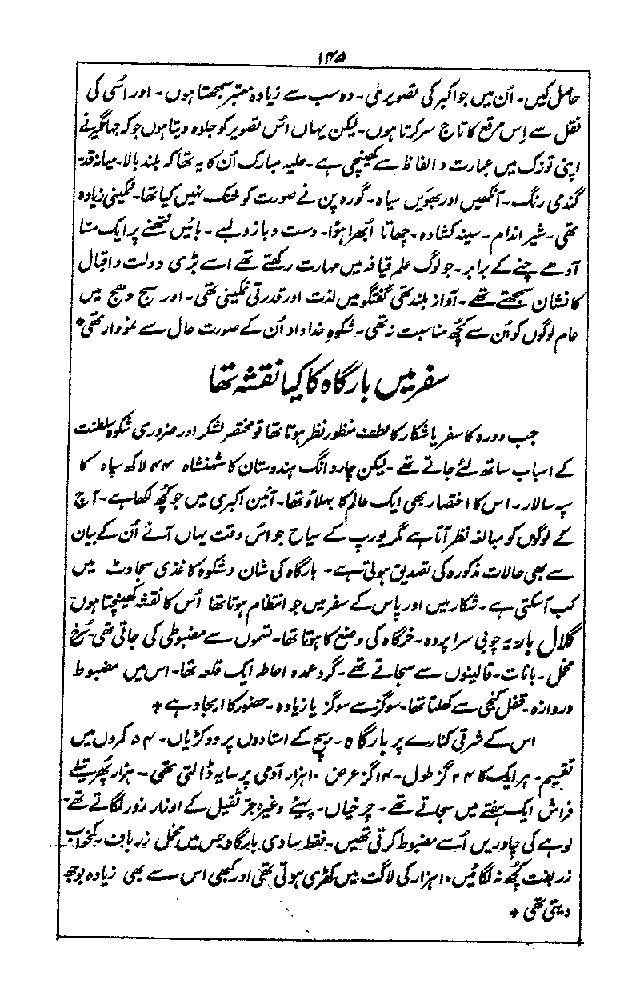 ۱۴۵
حاصل کیں۔ اُن میں جو اکبر کی تصویر ملی۔ وہ سب سے زیادہ معتبر سمجھتا ہوں۔ اور اُسی کی
نقل سے اِس مرقع کا تاج سر کرتا ہوں۔ لیکن یہاں اُس تصویر کو جلوہ دیتا ہوں جو کہ جہانگیر نے
اپنی توزک میں عبارت و الفاظ سے کھینچی ہے۔ حلیہ مبارک اُن کا یہ تھا کہ بلند بالا۔ میانہ قد۔
گندمی رنگ۔ آنکھیں اور بھویں سیاہ۔ گورہ پن نے صورت کو خشک نہیں کیا تھا۔ نمکینی زیادہ
تھی۔ شیر اندام۔ سینہ کشادہ۔ چھاتا اُبھرا ہوا۔ دست و بازو لمبے۔ بائیں نتھنے پر ایک مسّا
آدھے چنے کے برابر۔ جو لوگ علم قیافہ میں مہارت رکھتے تھے اسے بڑی دولت و اقبال
کا نشان سمجھتے تھے۔ آواز بلند تھی گفتگو میں لذت اور قدرتی نمکینی تھی۔ اور سج دھج میں
عام لوگوں کو اُن سے کچھ مناسبت نہ تھی۔ شکوہ خداداد اُن کے صورت حال سے نمودار تھی*
سفر میں بارگاہ کا کیا نقشہ تھا
جب دورہ کا سفر یا شکار کا لطف منظور نظر ہوتا تھا تو مختصر لشکر اور ضروری شکوہ سلطنت
کے اسباب ساتھ لئے جاتے تھے۔ لیکن چار دانگ ہندوستان کا شہنشاہ ۴۴ لاکھ سپاہ کا
سپہ سالار۔ اس کا اختصار بھی ایک عالم کا پھیلاؤ تھا۔ آئین اکبری میں جو کچھ لکھا ہے۔ آج
کے لوگوں کو مبالغہ نظر آتا ہے مگر یورپ کے سیاح جو اُس وقت یہاں آئے اُن کے بیان
سے بھی حالات مذکورہ کی تصدیق ہوتی ہے۔ بارگاہ کی شان و شکوہ کاغذی سجاوٹ میں
کب آ سکتی ہے۔ شکار میں اور پاس کے سفر میں جو انتظام ہوتا تھا اُس کا نقشہ کھینچتا ہوں
گلال بار یہ چوبی سراپردہ۔ خرگاہ کی وضع کا ہوتا تھا۔ تسموں سے مضبوطی کی جاتی تھی۔ سرخ
مخمل۔ بانات۔ قالینوں سے سجاتے تھے۔ گرد عمدہ احاطہ ایک قلعہ تھا۔ اس میں مضبوط
دروازہ۔ قفل کنجی سے کھلتا تھا۔ سو گز سے سو گز یا زیادہ۔ حضور کا ایجاد ہے *
اس کے شرقی کنارے پر بارگاہ۔ بیچ کے استادوں پر دو کڑیاں۔ ۵۴ کمروں میں
تقسیم۔ ہر ایک کا ۲۴ گز طول۔ ۱۴ گز عرض۔ ۱۰ ہزار آدمی پر سایہ ڈالتی تھی۔ ہزار پھرتیلے
فراش ایک ہفتے میں سجاتے تھے۔ چرخیاں۔ پہیے وغیرہ جرثقیل کے اوزار زور لگاتے تھے۔
لوہے کی چادریں اُسے مضبوط کرتی تھیں۔ فقط سادی بارگاہ جس میں مخمل زربافت کمخواب
زربفت کچھ نہ لگائیں۔ ۱۰ ہزار کی لاگت میں کھڑی ہوتی تھی اور کبھی اس سے بھی زیادہ بوجھ
دیتی تھی *